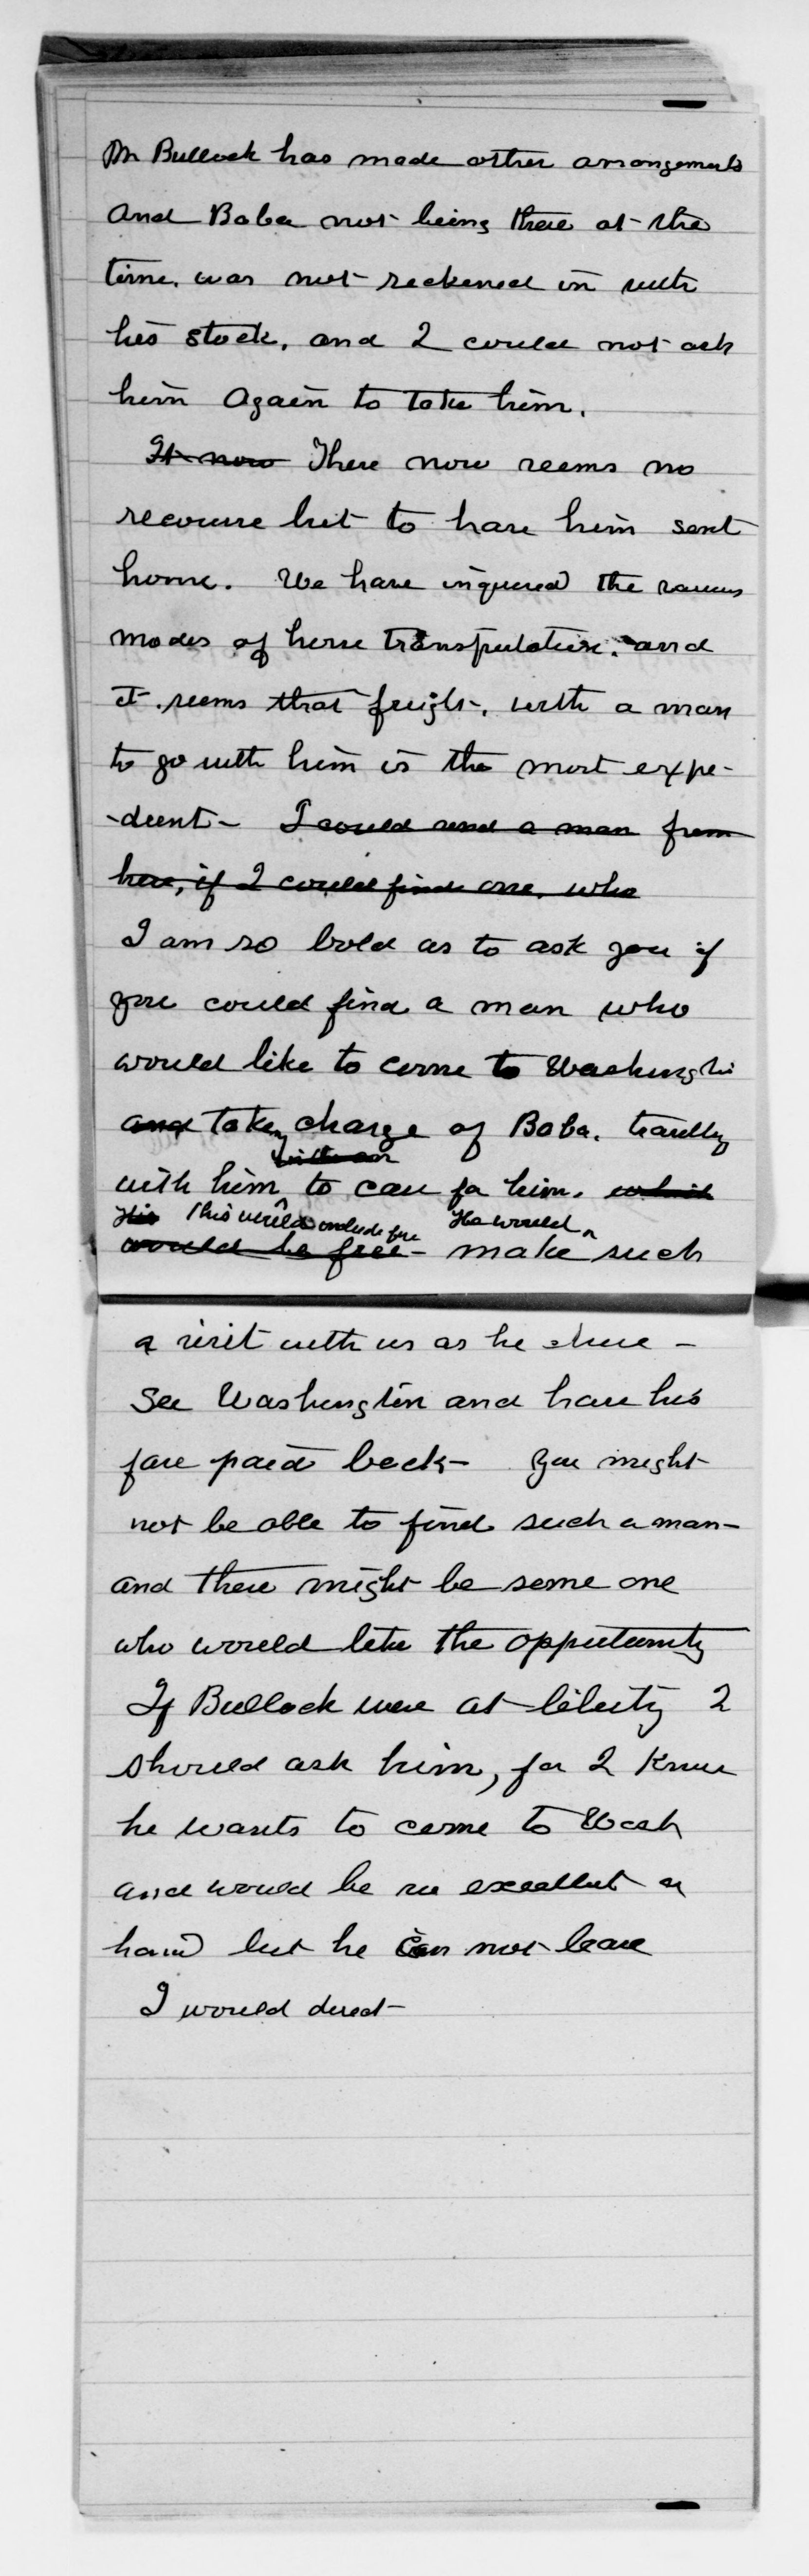 Mr Bullock has made other arrangements
and Baba not being there at the
time, was not reckened in with
his stock, and I could not ask
him again to take him.
It now There now seems no
recourse but to have him sent
home. We have inquired the various
modes of horse transportation, and
it seems that freight, with a man
to go with him is the most expe-
-dient - I could send a man from
here, if I could find one, who
I am so bold as to ask you if
you could find a man who
would like to come to Washington
and taking charge of Baba. travelling
with him to care for him.
His This would include fare He would
would be free - make such
a visit with us as he chose -
See Washington and have his
fare paid back - You might
not be able to find such a man -
and there might be some one
who would like the opportunity
If Bullock were at liberty I
should ask him, for I know
he wants to come to Wash
and would be an excellent
hand but he can not leave
I would direct -